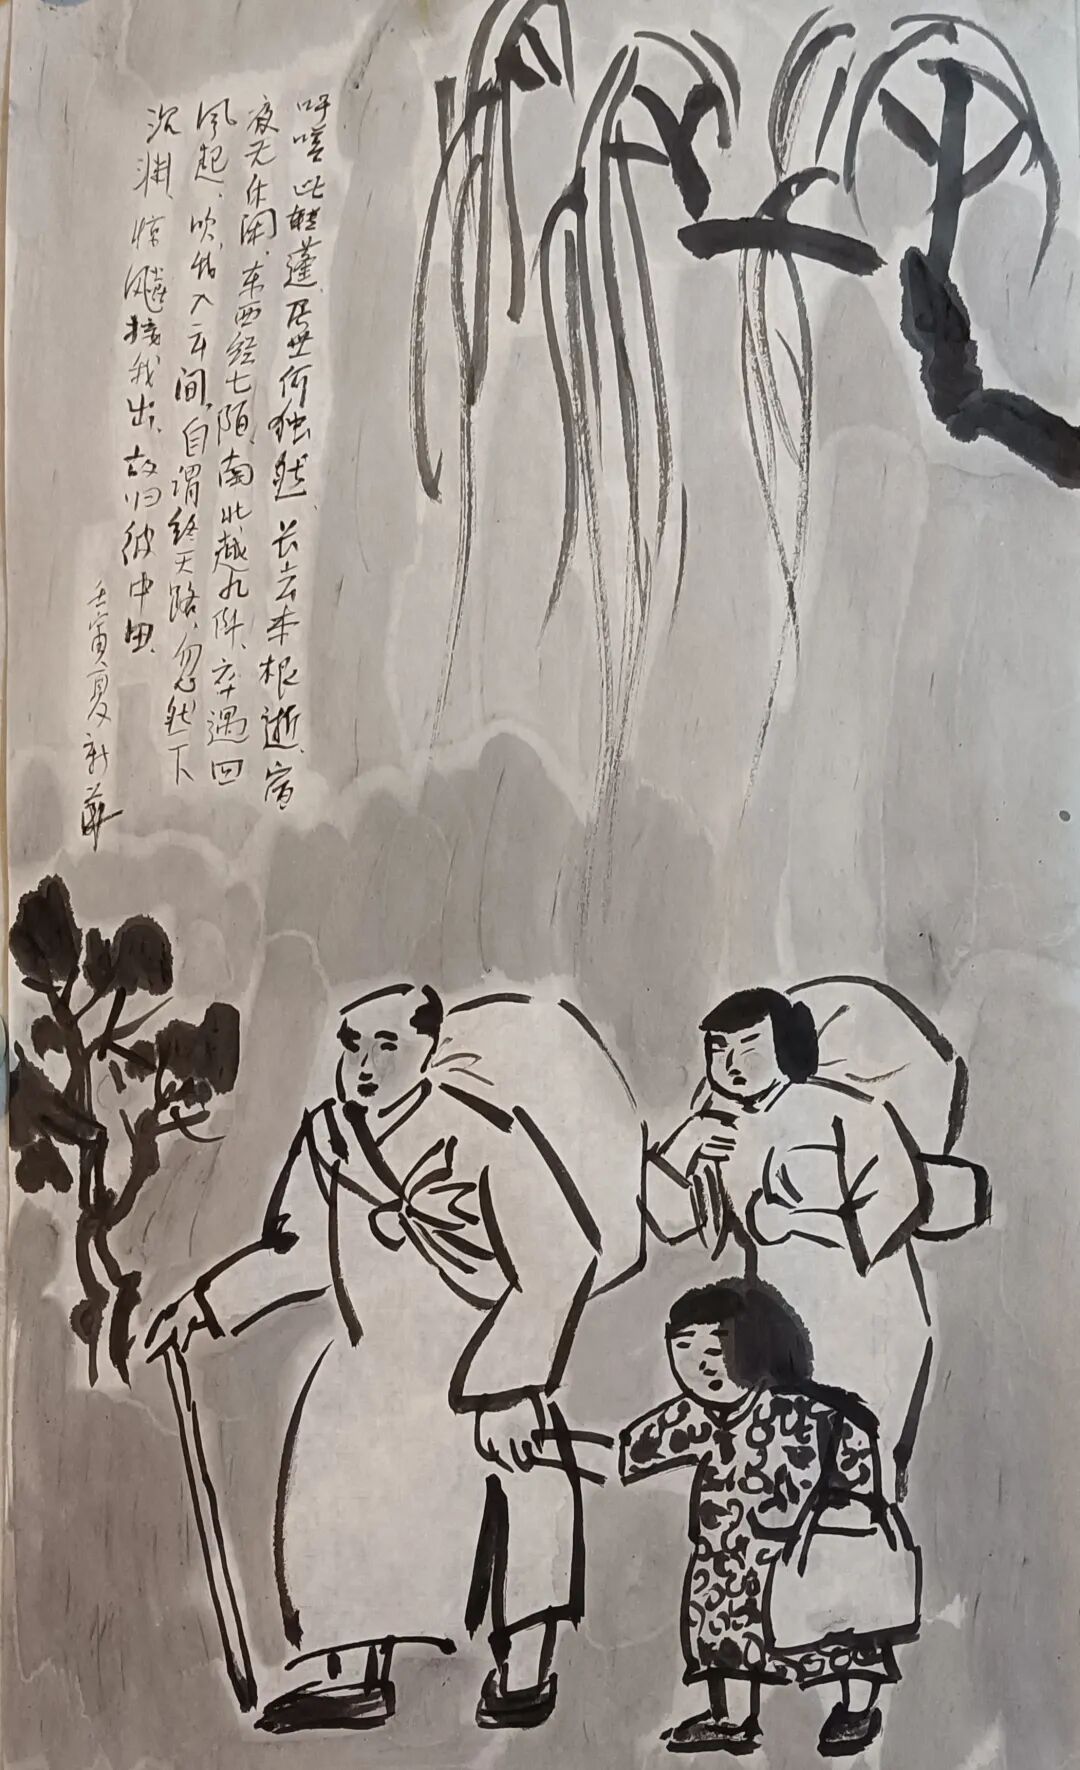 吁嗟此转蓬、居世何独然、长去本根逝、宿
夜无休闲、东西经七陌、南北越九阡、卒遇四
风起、吹我入云间、自谓终天路、忽然下
沉渊、惊飚接我出、故归彼中田、
壬寅夏新华